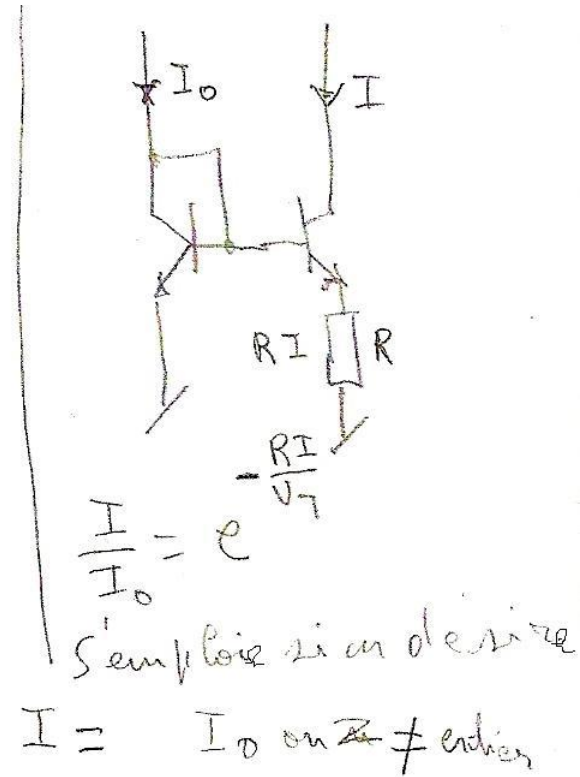 I₀ I
RI R
I/I₀ = e^(-RI/V_T)
S'emploie si on désire
I = I₀ ou ≠ entier